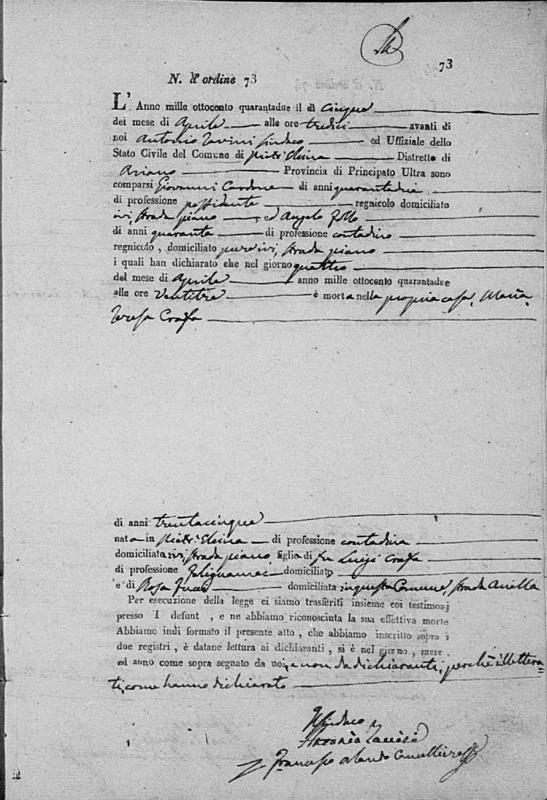 73
N. d'ordine 73
L'Anno mille ottocento quarantadue il dì cinque
del mese di Aprile alle ore tredici avanti di
noi Antonio Sindaco ed Uffiziale dello
Stato Civile del Comune di Distretto di
Ariano Provincia di Principato Ultra sono
comparsi Giovanni Cardone di anni quarantadue
di professione possidente regnicolo domiciliato
ivi strada piano ed Angelo
di anni quaranta di professione contadino
regnicolo, domiciliato pure ivi, strada piano
i quali han dichiarato che nel giorno quattro
del mese di Aprile anno mille ottocento quarantadue
alle ore ventitre è morta nella propria casa, Maria
Teresa
di anni trentacinque
nata in di professione contadina
domiciliata ivi, strada piano, figlia di fu Luigi
di professione falegname domiciliato
e di Rosa domiciliata in questo Comune, strada
Per esecuzione della legge ci siamo trasferiti insieme coi testimonj
presso l defunt , e ne abbiamo riconosciuta la sua effettiva morte
Abbiamo indi formato il presente atto, che abbiamo inscritto sopra i
due registri, è datane lettura ai dichiaranti, si è nel giorno, mese,
ed anno come sopra segnato da noi, e non da dichiaranti, perchè illettera-
ti, come hanno dichiarato
Il Sindaco
Antonio
Francesco Orlando Cancelliere